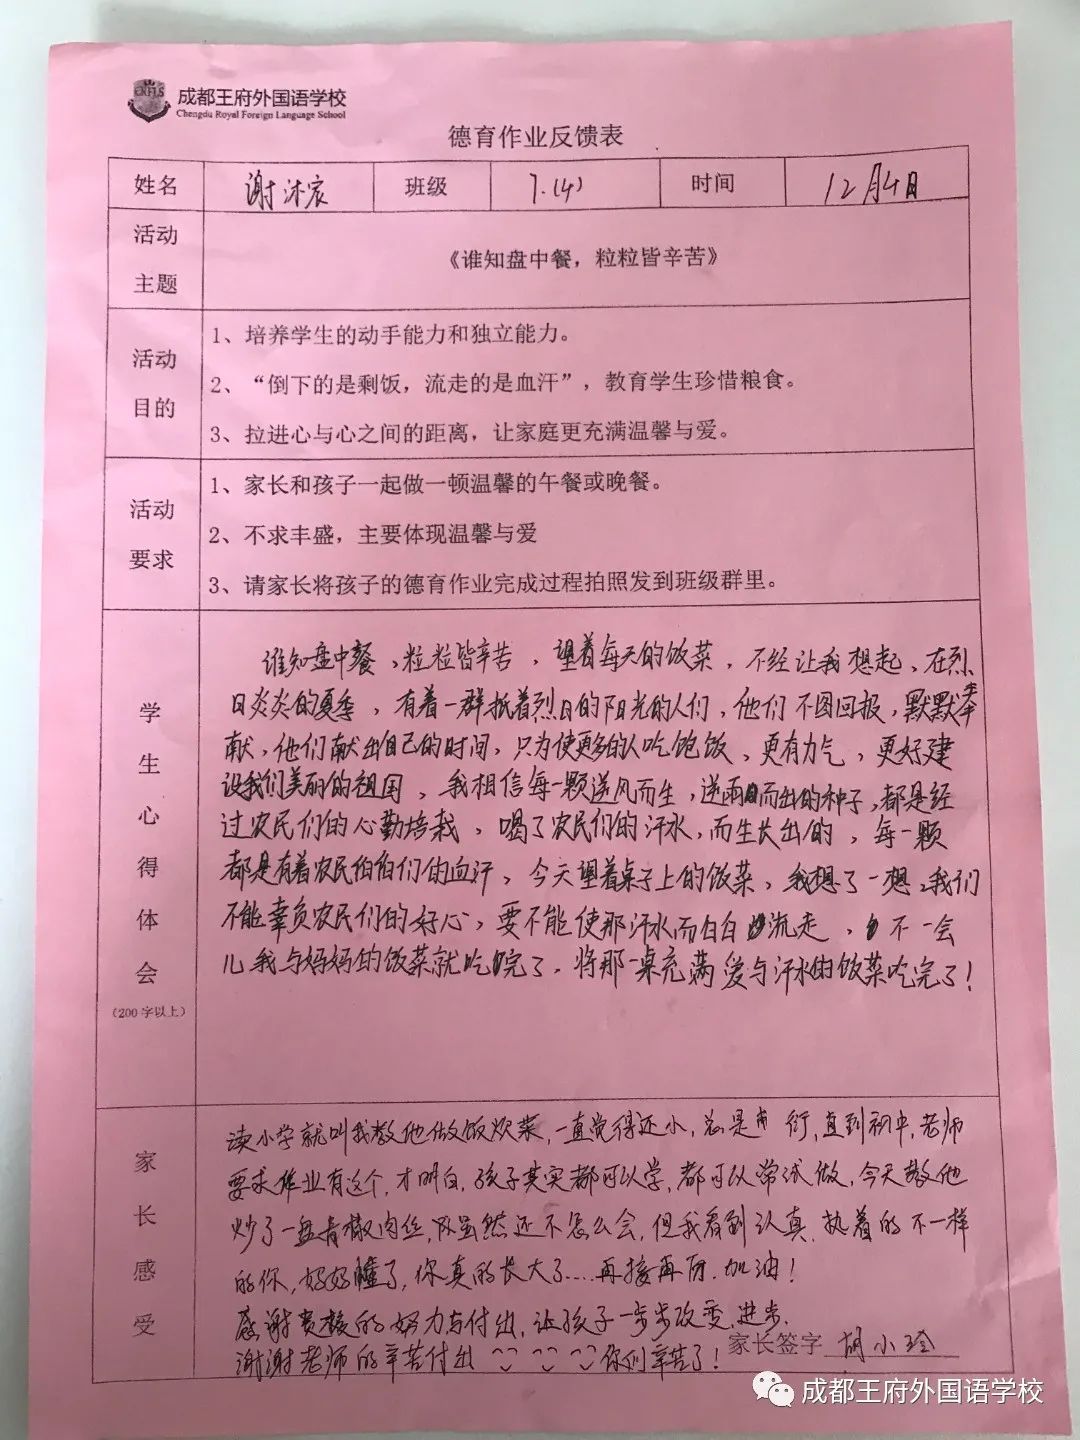 CRFLS
成都王府外国语学校
Chengdu Royal Foreign Language School
德育作业反馈表
姓名 谢沐宸 班级 7.(4) 时间 12月4日
活动主题
《谁知盘中餐，粒粒皆辛苦》
活动目的
1、培养学生的动手能力和独立能力。
2、“倒下的是剩饭，流走的是血汗”，教育学生珍惜粮食。
3、拉进心与心之间的距离，让家庭更充满温馨与爱。
活动要求
1、家长和孩子一起做一顿温馨的午餐或晚餐。
2、不求丰盛，主要体现温馨与爱
3、请家长将孩子的德育作业完成过程拍照发到班级群里。
学生心得体会
(200字以上)
谁知盘中餐，粒粒皆辛苦，望着每天的饭菜，不经让我想起，在烈
日炎炎的夏季，有着一群抵着烈日的阳光的人们，他们不图回报，默默奉
献，他们献出自己的时间，只为使更多的人吃饱饭，更有力气，更好建
设我们美丽的祖国。我相信每一颗逆风而生，逆雨而出的种子，都是经
过农民们的心勤培栽，喝了农民们的汗水，而生长出的，每一颗
都是有着农民伯伯们的血汗。今天望着桌子上的饭菜，我想了一想，我们
不能辜负农民们的好心，要不能使那汗水而白白流走，不一会
儿我与妈妈的饭菜就吃完了，将那一桌充满爱与汗水的饭菜吃完了！
家长感受
读小学就叫我教他做饭炊菜，一直觉得还小，总是 衍，直到初中，老师
要求作业有这个，才明白，孩子其实都可以学，都可以尝试做，今天教他
炒了一盘青椒肉丝，虽然还不怎么会，但我看到认真，执着的不一样
的你，好好懂了，你真的长大了....再接再历，加油！
感谢贵校的努力与付出，让孩子一步步改变，进步.
谢谢老师的辛苦付出 你们辛苦了！
家长签字 胡小玲
成都王府外国语学校